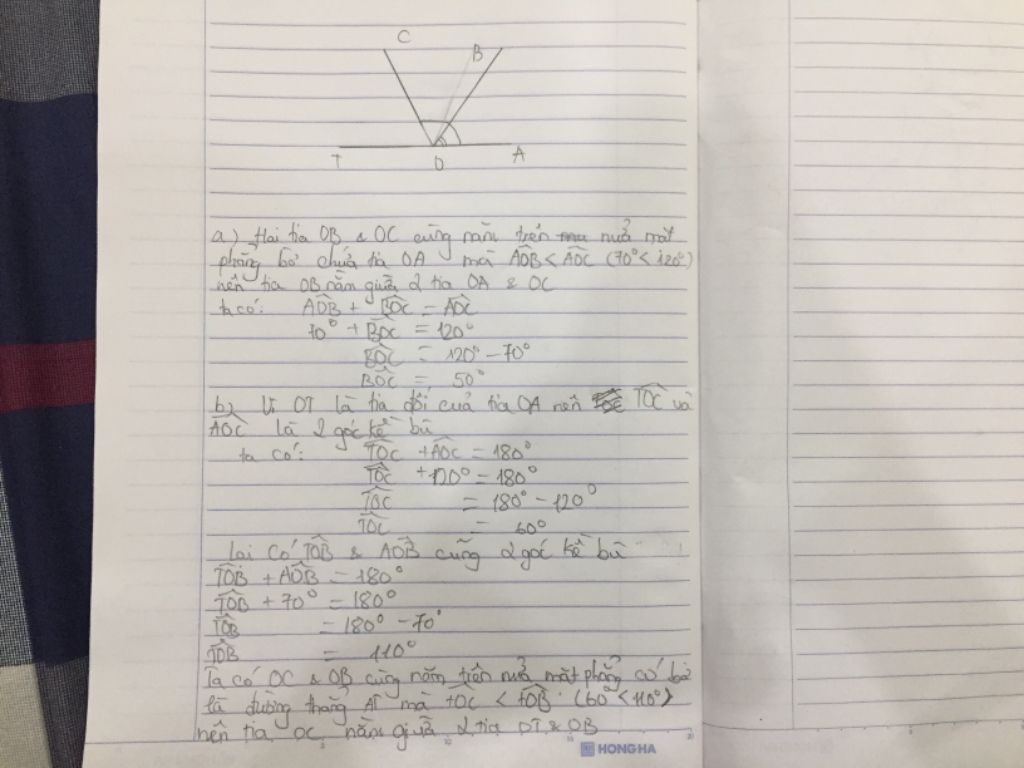 C
B
T
O
A
a) Hai tia OB & OC cùng nằm trên nửa mặt
phẳng bờ chứa tia OA mà AÔB < AÔC (70° < 120°)
nên tia OB nằm giữa 2 tia OA & OC
ta có: AÔB + BÔC = AÔC
70° + BÔC = 120°
BÔC = 120° - 70°
BÔC = 50°
b) Vì OT là tia đối của tia OA nên TÔC và
AÔC là 2 góc kề bù
ta có: TÔC + AÔC = 180°
TÔC + 120° = 180°
TÔC = 180° - 120°
TÔC = 60°
lại có TÔB & AÔB cũng 2 góc kề bù
TÔB + AÔB = 180°
TÔB + 70° = 180°
TÔB = 180° - 70°
TÔB = 110°
Ta có OC & OB cùng nằm trên nửa mặt phẳng có bờ
là đường thẳng AT mà TÔC < TÔB (60° < 110°)
nên tia OC nằm giữa 2 tia OT & OB
HONG HA